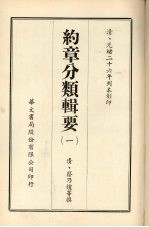 清·光緒二十六年刊本影印
約章分類輯要
(一)
清·蔡乃煌等撰
華文書局股份有限公司印行